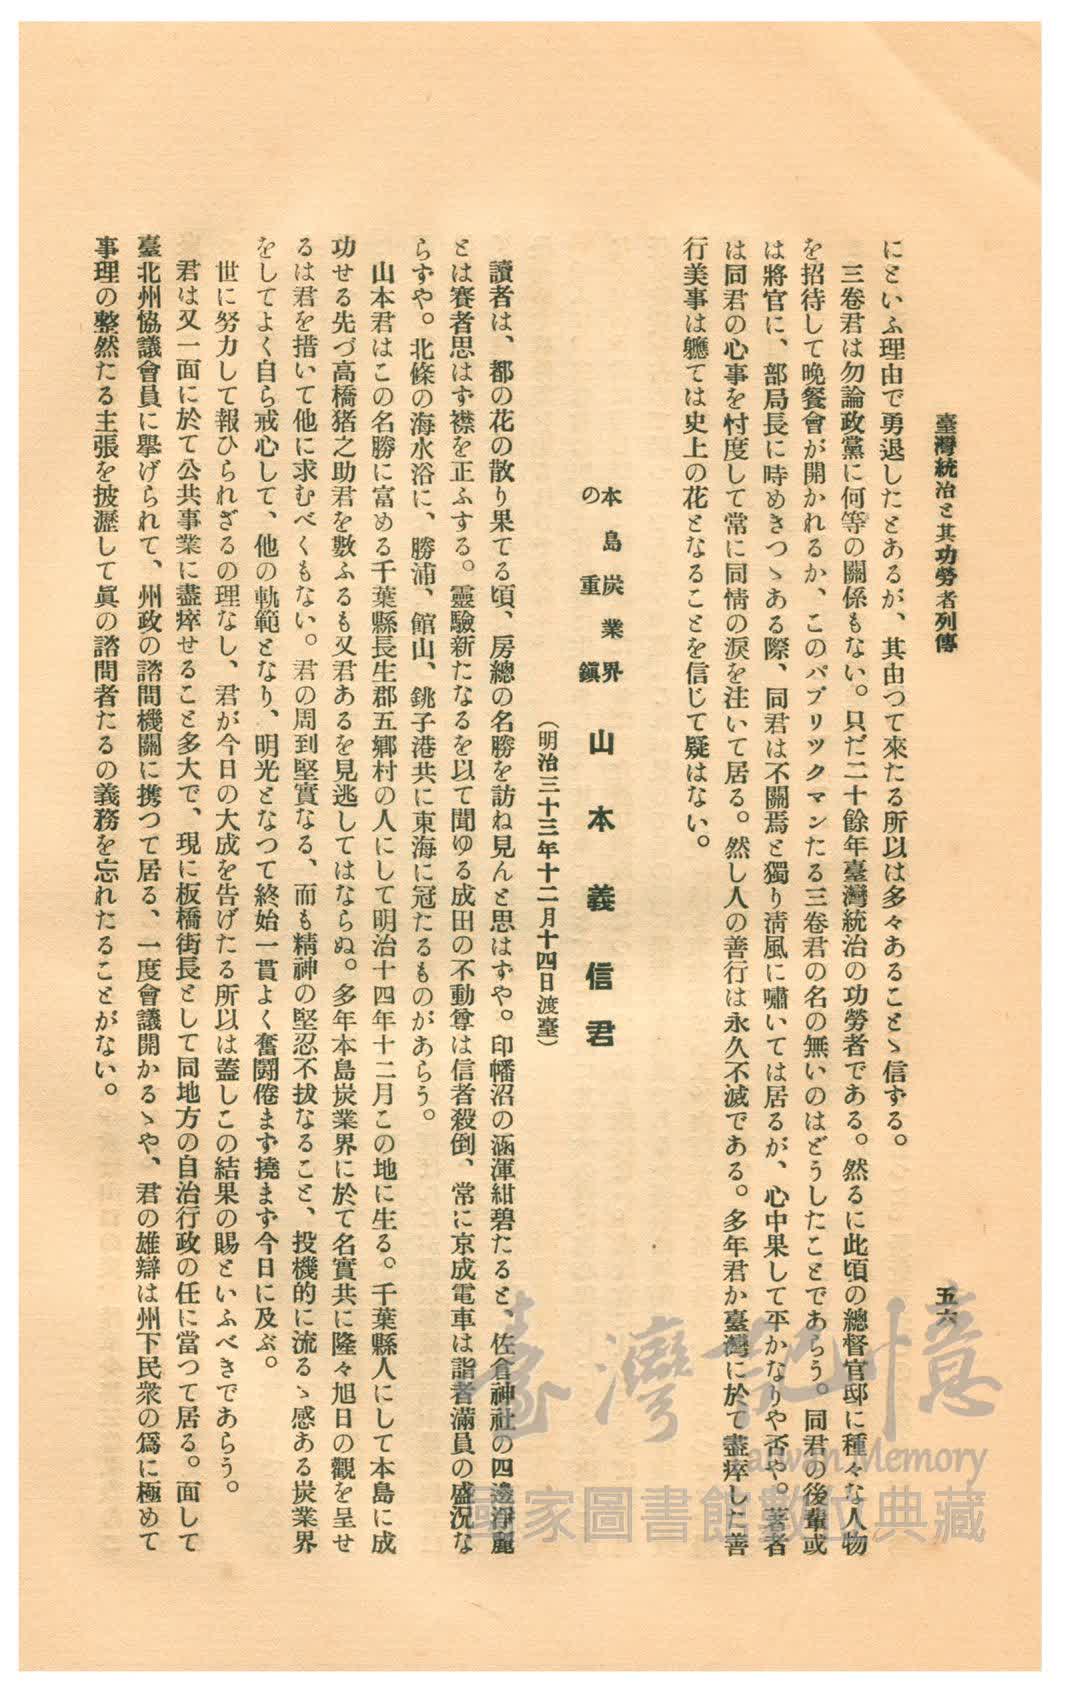 臺灣統治と其功勞者列傳
五六
にといふ理由で勇退したとあるが、其由つて來たる所以は多々あることゝ信ずる。
三卷君は勿論政黨に何等の關係もない。只だ二十餘年臺灣統治の功勞者である。然るに此頃の總督官邸に種々な人物
を招待して晩餐會が開かれるか、このパブリツクマンたる三卷君の名の無いのはどうしたことであらう。同君の後輩或
は將官に、部局長に時めきつゝある際、同君は不關焉と獨り淸風に嘯いては居るが、心中果して平かなりや否や。著者
は同君の心事を忖度して常に同情の淚を注いて居る。然し人の善行は永久不滅である。多年君か臺灣に於て盡瘁した善
行美事は軈ては史上の花となることを信じて疑はない。
本島炭業界
の重鎭
山本義信君
(明治三十三年十二月十四日渡臺)
讀者は、都の花の散り果てる頃、房總の名勝を訪ね見んと思はずや。印幡沼の涵渾紺碧たると、佐倉神社の四邊淨麗
とは賽者思はず襟を正ふする。靈驗新たなるを以て聞ゆる成田の不動尊は信者殺倒、常に京成電車は詣者滿員の盛況な
らずや。北條の海水浴に、勝浦、館山、銚子港共に東海に冠たるものがあらう。
山本君はこの名勝に富める千葉縣長生郡五鄕村の人にして明治十四年十二月この地に生る。千葉縣人にして本島に成
功せる先づ高橋猪之助君を數ふるも又君あるを見逃してはならぬ。多年本島炭業界に於て名實共に隆々旭日の觀を呈せ
るは君を措いて他に求むべくもない。君の周到堅實なる、而も精神の堅忍不拔なること、投機的に流るゝ感ある炭業界
をしてよく自ら戒心して、他の軌範となり、明光となつて終始一貫よく奮鬪倦まず撓まず今日に及ぶ。
世に努力して報ひられざるの理なし、君が今日の大成を告げたる所以は蓋しこの結果の賜といふべきであらう。
君は又一面に於て公共事業に盡瘁せること多大で、現に板橋街長として同地方の自治行政の任に當つて居る。面して
臺北州協議會員に擧げられて、州政の諮問機關に携つて居る、一度會議開かるゝや、君の雄辯は州下民衆の爲に極めて
事理の整然たる主張を披瀝して眞の諮問者たるの義務を忘れたることがない。
臺灣記憶
Taiwan Memory
國家圖書館數位典藏